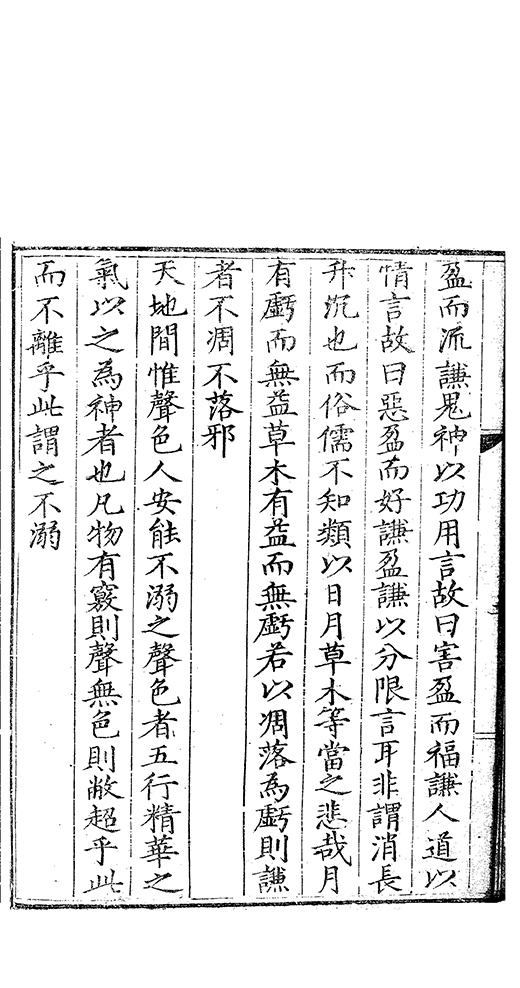 盈而流謙鬼神以功用言故曰害盈而福謙人道以
情言故曰惡盈而好謙盈謙以分限言耳非謂消長
升沉也而俗儒不知類以日月草木等當之悲哉月
有虧而無益草木有益而無虧若以凋落為虧則謙
者不凋不落邪
天地間惟聲色人安能不溺之聲色者五行精華之
氣以之為神者也凡物有竅則聲無色則敝超乎此
而不離乎此謂之不溺